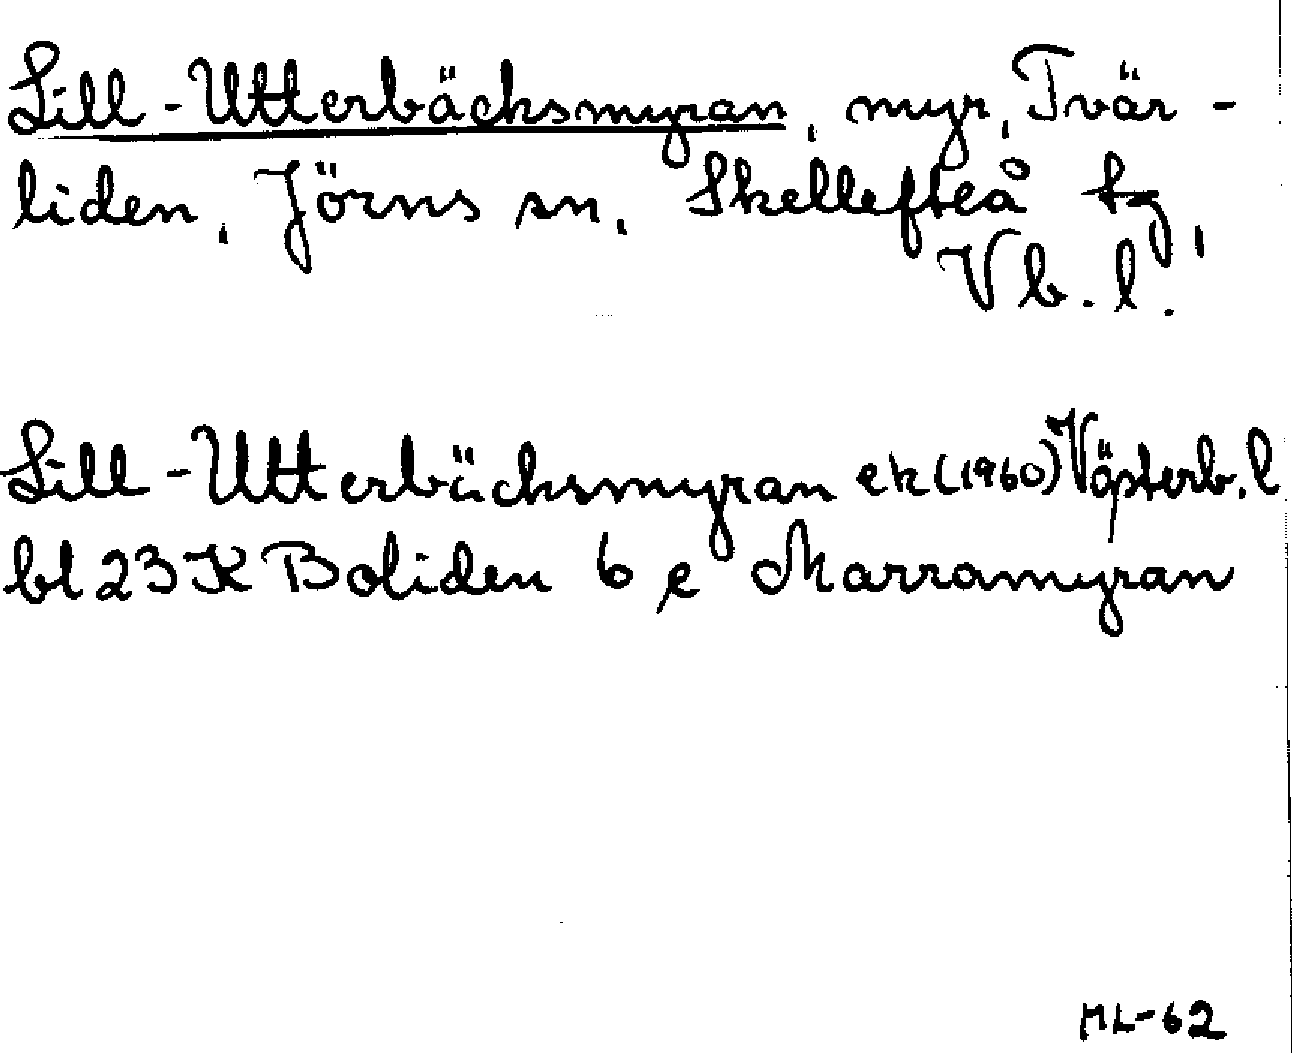 Lill-Utterbäcksmyran, myr, Tvär-
liden, Jörns sn, Skellefteå tg,
Vb. l.
Lill-Utterbäcksmyran ek (1960) Västerb. l
bl 23 K Boliden 6 e Marramyran
ML-62